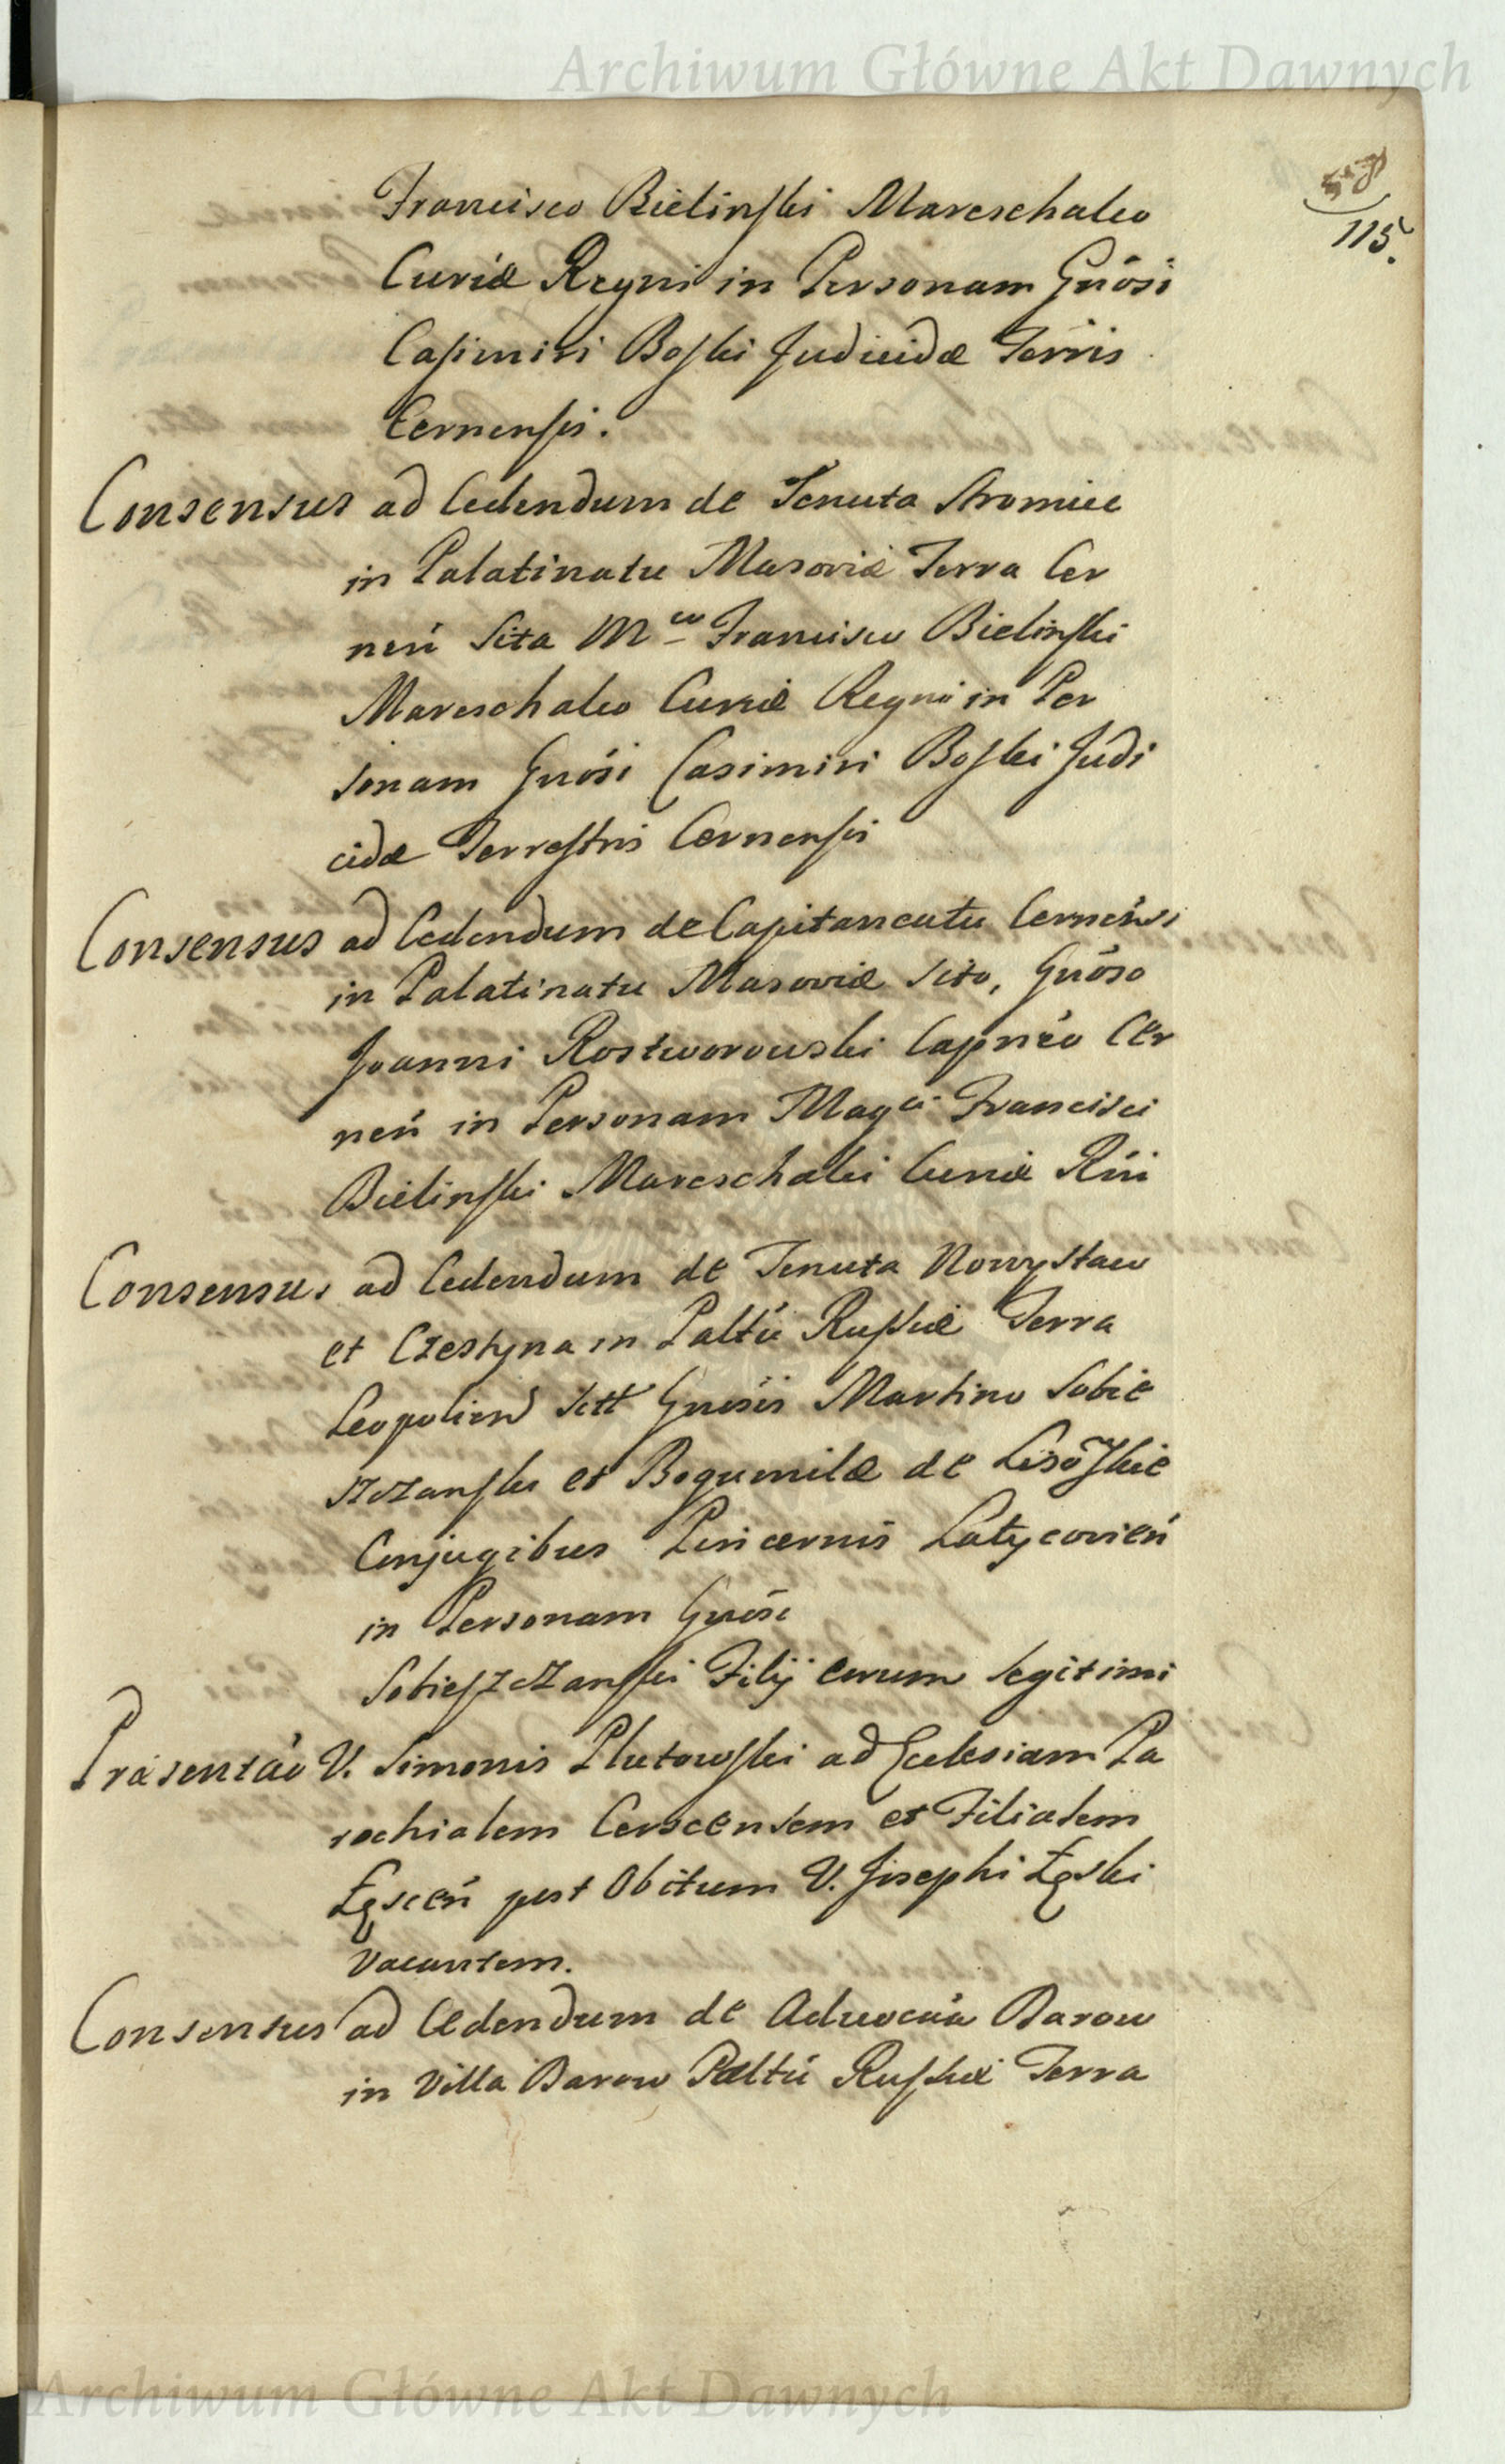 Archiwum Główne Akt Dawnych
115.
Francisco Bielinski Mareschalco
Curiæ Regni in Personam Gnosi
Casimiri Boski Judicidæ Terris
Cernensis.
Consensus ad Cedendum de Tenuta Stromiec
in Palatinatu Masoviæ Terra Cer
nen Sita M co Francisco Bielinski
Mareschalco Curiæ Regni in Per
sonam Gnosi Casimiri Boski Judi
cidæ Terrestris Cernensis
Consensus ad Cedendum de Capitaneatu Cernensi
in Palatinatu Masoviæ Sito, Gnoso
Joanni Rostworowski Capneo Cer
nen in Personam Mag ci Francisci
Bielinski Mareschalci Curiæ Rni
Consensus ad Cedendum de Tenuta Nowystaw
et Czestyna in Paltu Russiæ Terra
Leopolien Sitt Gnosis Martino Sobie
szczanski et Bogumilæ de
Conjugibus Pincernis Latycovien
in Personam Gnosi
Sobieszczanski Filij eorum legitimi
Præsentao V. Simonis Plutowski ad Ecclesiam Pa
rochialem Cerscensem et Filialem
Łęscen post Obitum V. Josephi Łęski
Vacantem.
Consensus ad Cedendum de Advocaa Barow
in Villa Barow Paltu Russiæ Terra
Archiwum Główne Akt Dawnych